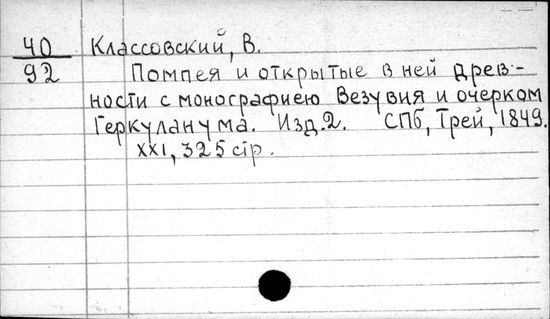 40 Классовский, В.
92 Помпея и открытые в ней древ-
ности с монографиею Везувия и очерком
Геркуланума. Изд.2. СПб, Трей, 1849.
XXI, 325 стр.